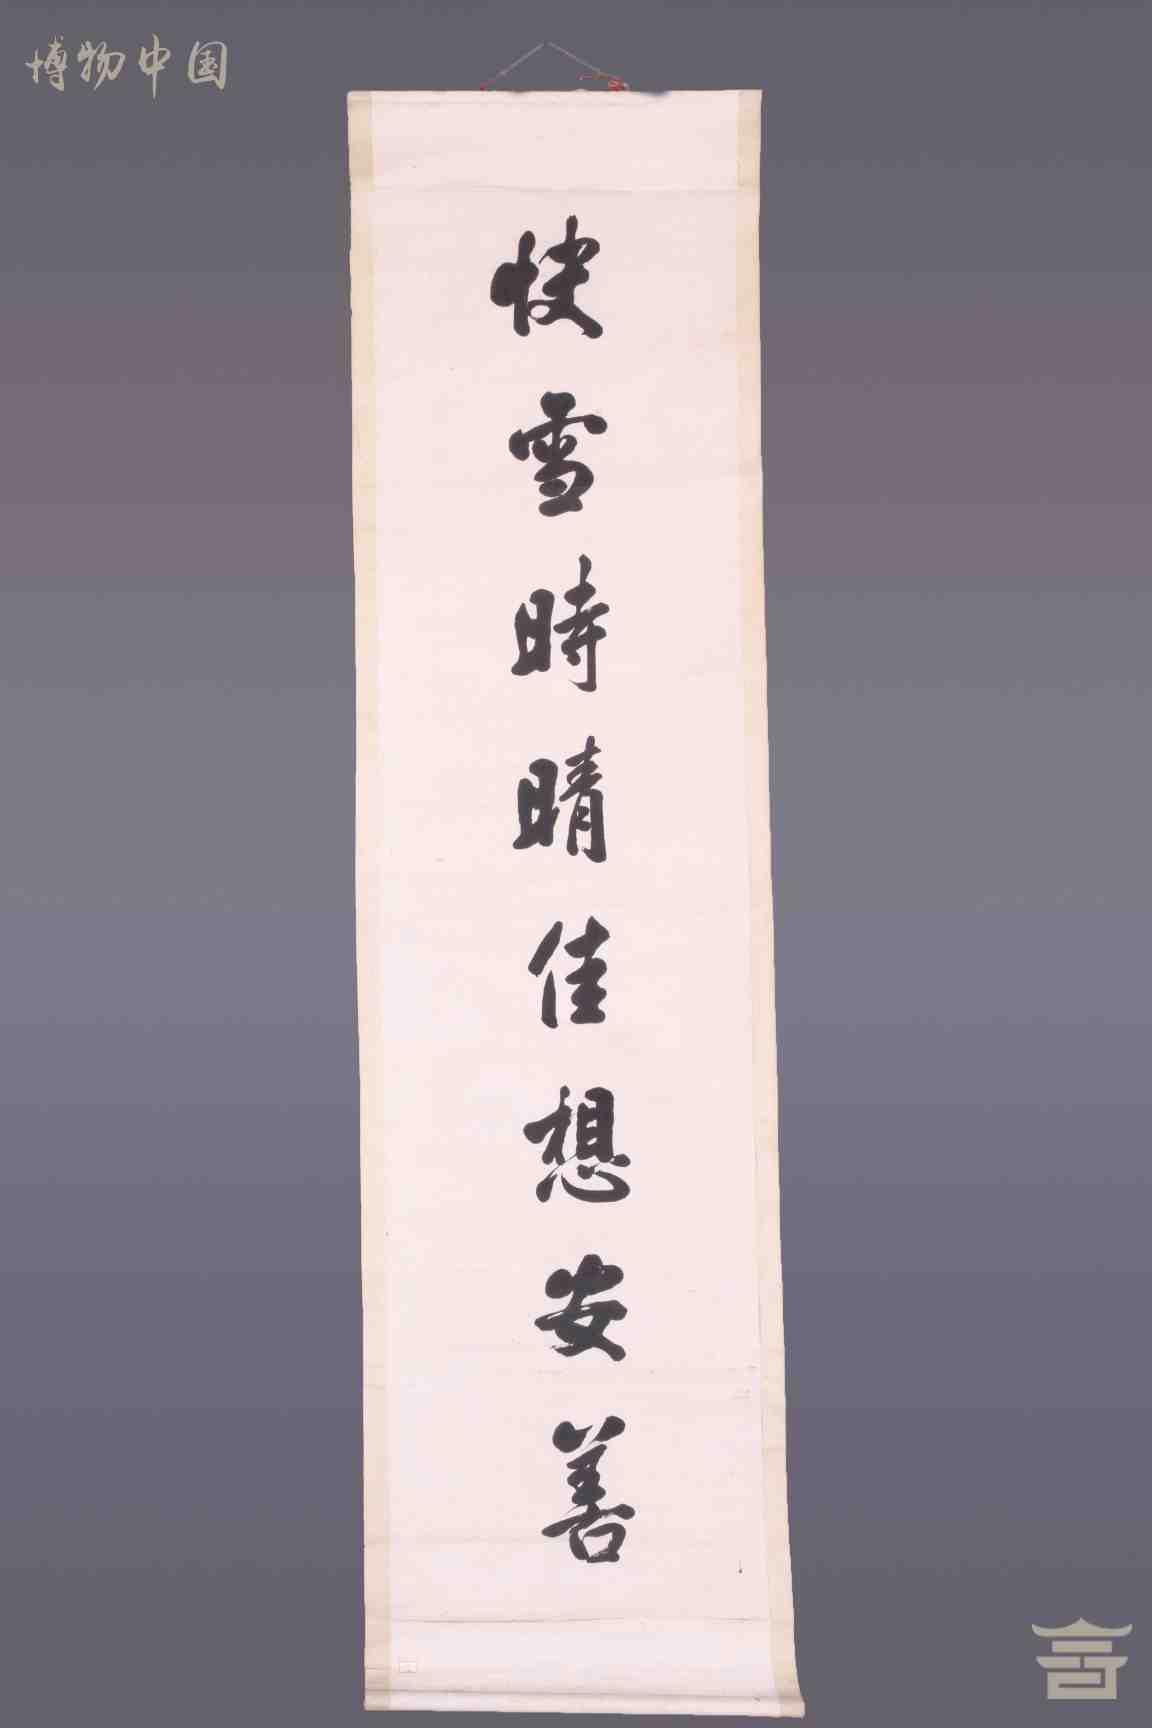 博物中国
快雪時晴佳想安善